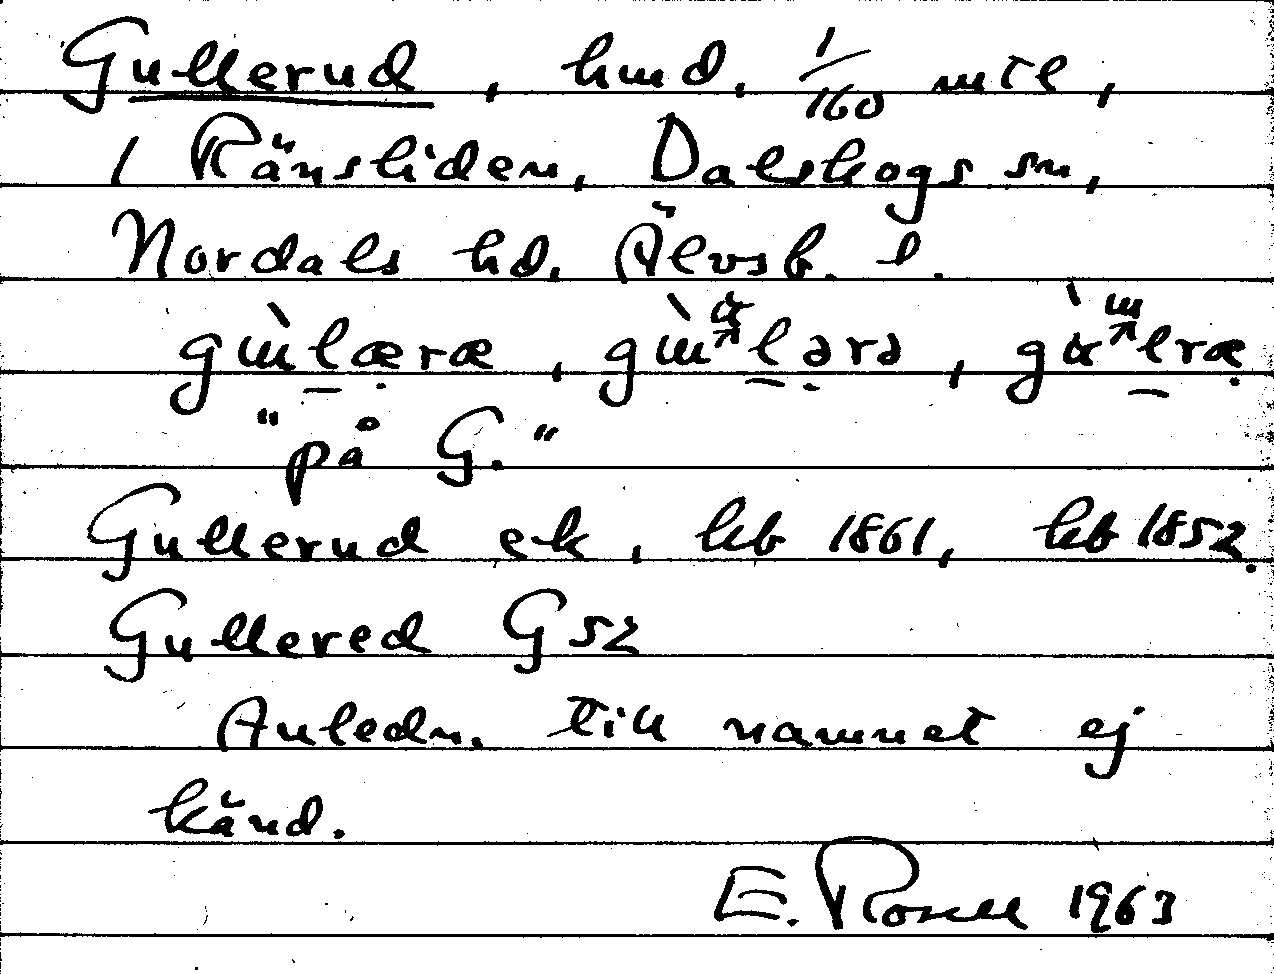 Gullerud, hmd, 1/160 mtl,
i Ränsliden, Dalskogs sn,
Nordals hd. Älvsb. l.
"på G."
Gullerud ek, hb 1861, hb 1852.
Gullered G52
Anledn. till namnet ej
känd.
E. Rosell 1963